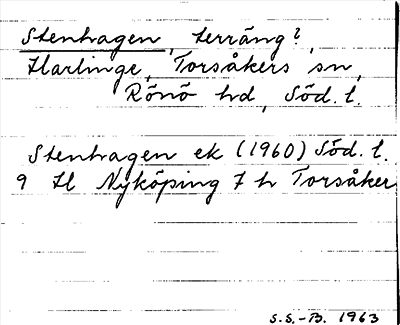 Stenhagen, terräng?,
Harlinge, Torsåkers sn,
Rönö hd, Söd. l.
Stenhagen ek (1960) Söd. l.
9 H Nyköping 7 h Torsåker
S.S.-B. 1963